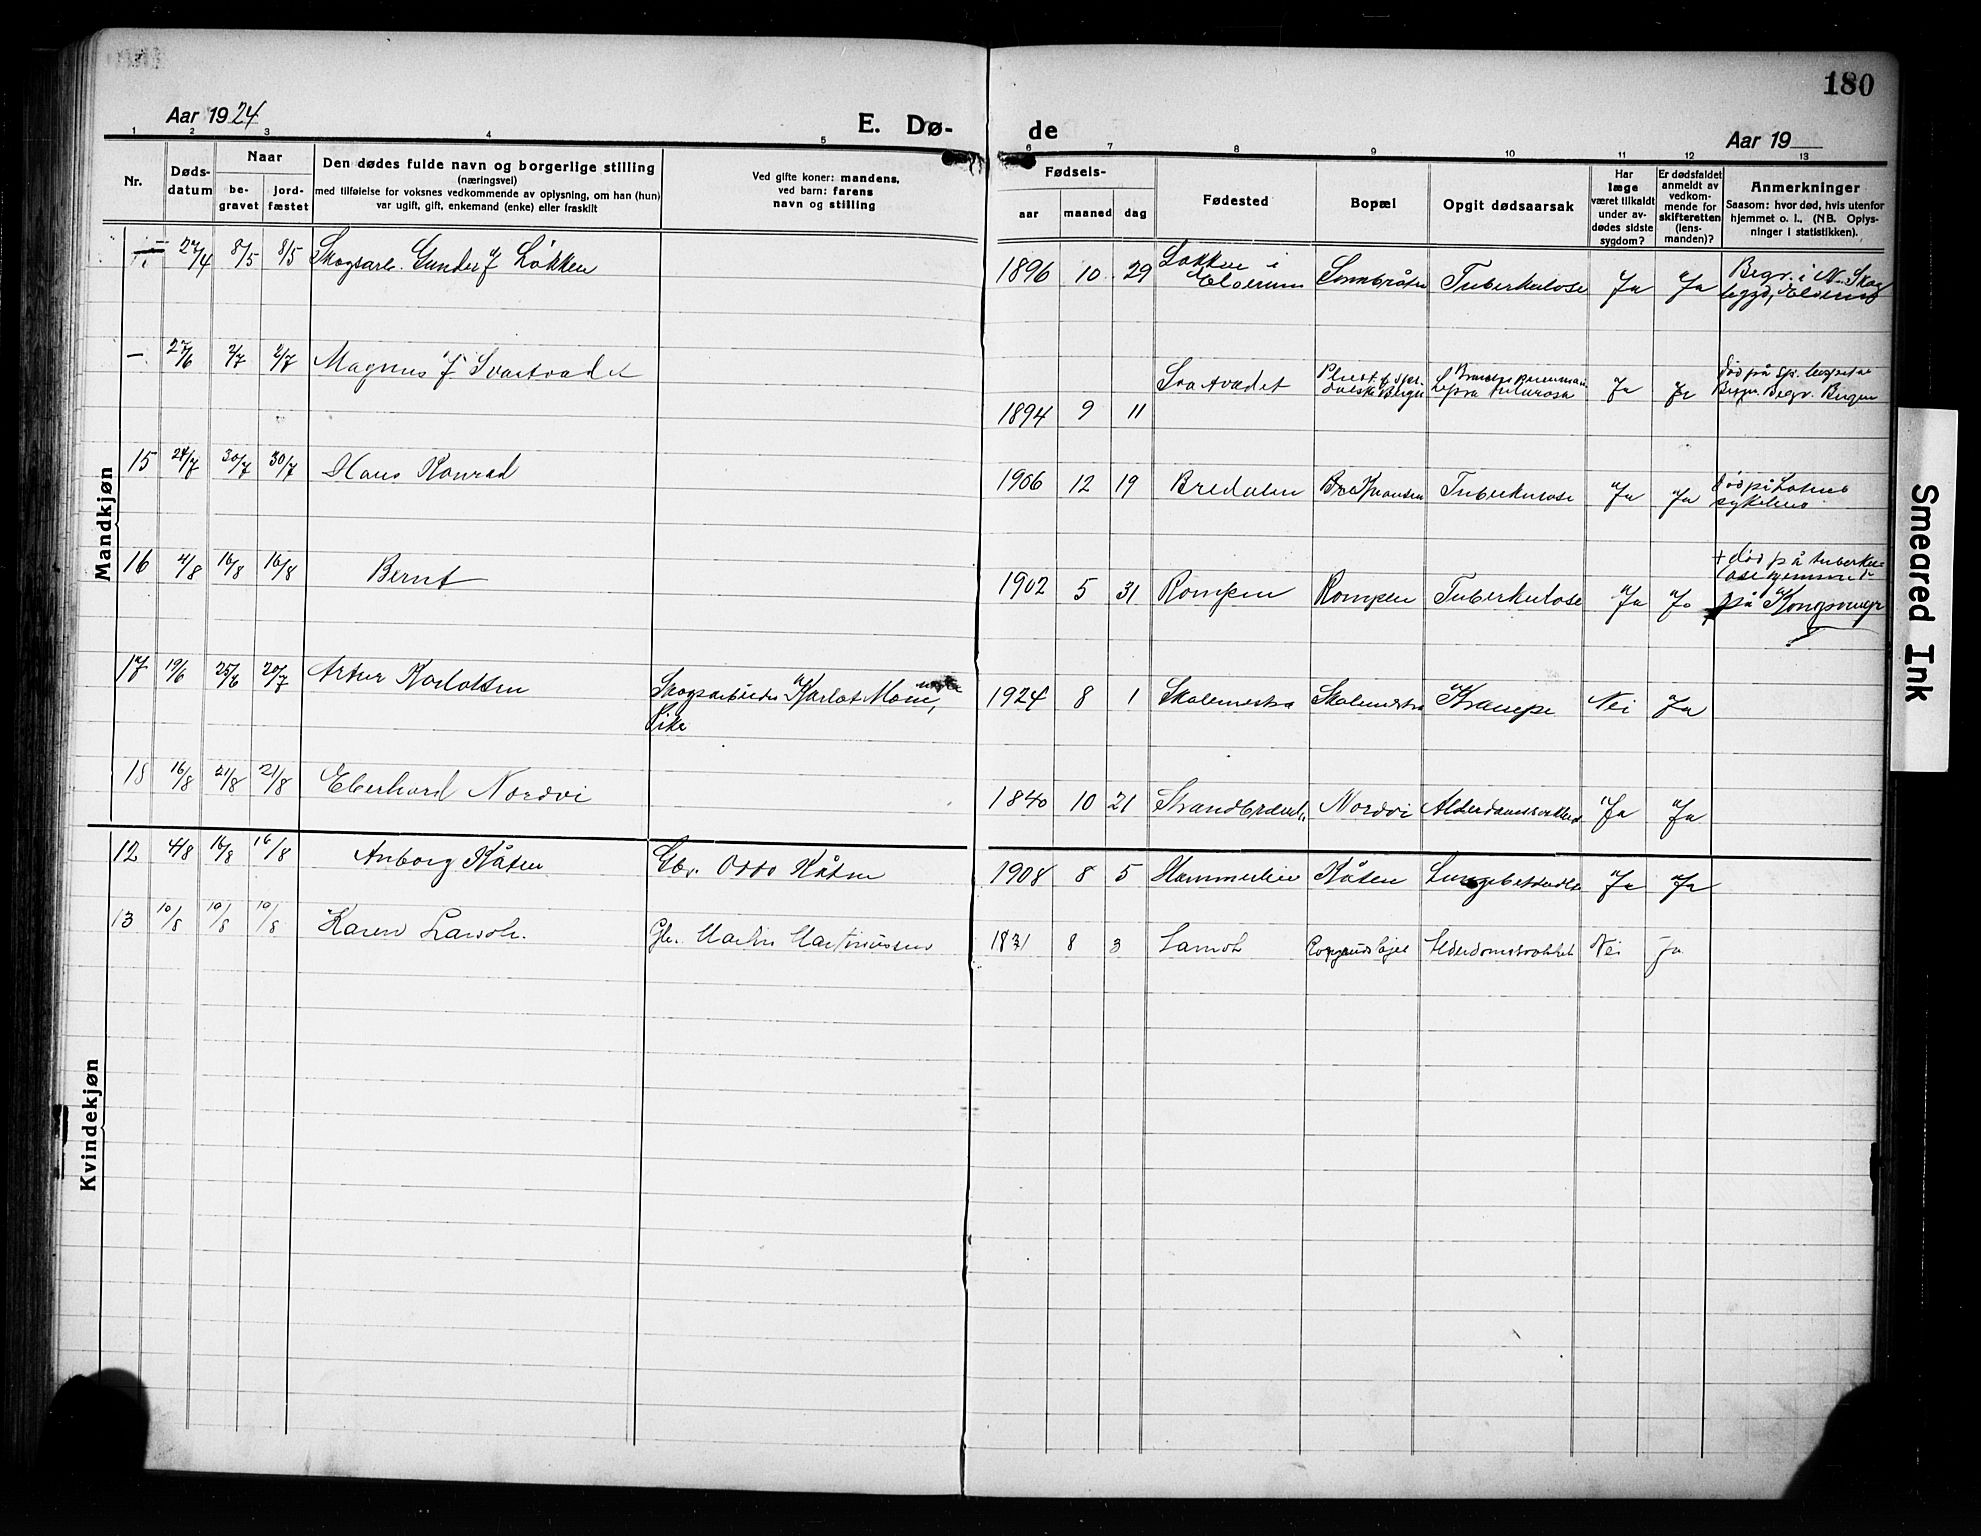 180
Aar 1924
E. Dø-
de
Aar 19
1 2 3 4 5 6 7 8 9 10 11 12 13
Nr.
Døds-
datum
Naar
be-
gravet
jord-
fæstet
Den dødes fulde navn og borgerlige stilling
(næringsvei)
med tilføielse for voksnes vedkommende av oplysning, om han (hun)
var ugift, gift, enkemand (enke) eller fraskilt
Ved gifte koner: mandens,
ved barn: farens
navn og stilling
Fødsels-
aar maaned dag
Fødested
Bopæl
Opgit dødsaarsak
Har
læge
været tilkaldt
under av-
dødes sidste
sygdom?
Er dødsfaldet
anmeldt av
vedkom-
mende for
skifteretten
(lens-
manden)?
Anmerkninger
Saasom: hvor død, hvis utenfor
hjemmet o. l., (NB. Oplys-
ninger i statistikken).
Mandkjøn
27/4 8/5 8/5 Skogsarb. Gunder J Løkken
1896 10 29 Løkken i Elverum Tuberkulose Ja Ja Begr. i N. Skog
bygd, Elverum
— 27/6 2/7 2/7 Magnus J. Svartvadet
1894 9 11 Svartvadet Lepra tuberosa Ja Ja død på Sp. hospital
Bergen. Begr. Bergen
15 24/7 30/7 30/7 Hans Konrad
1906 12 19 Bredalen Tuberkulose Ja Ja død på
sykehus
16 4/8 16/8 16/8 Bernt
1902 5 31 Rompen Rompen Tuberkulose Ja Ja + død på tuberku-
losehjemmet
på Kongsvinger
17 19/6 25/6 20/7 Artur Karlotsen Skogsarbeider Karlot Moen,
1924 8 1 Skalmestra Skalmestra Krampe Nei Ja
18 16/8 21/8 21/8 Eberhard Nordvi
1840 10 21 Nordvi Alderdomssvakhed Ja Ja
Kvindekjøn
12 4/8 16/8 16/8 Anborg Kåten Gbr. Otto Kåten
1908 8 5 Kåten Ja Ja
13 10/8 10/8 10/8 Karen Gbr. Martin Martinussen
8 3 Alderdomssvakhet Nei Ja
Smeared Ink